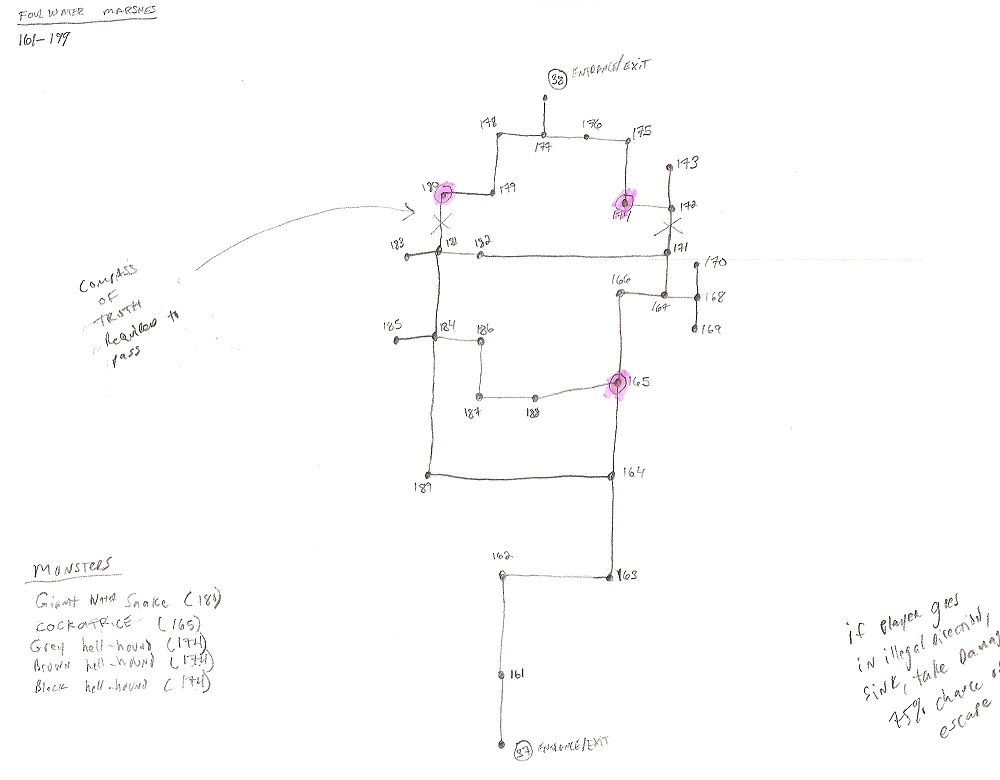 FOUL WATER MARSHES
161-199
38 ENTRANCE/EXIT
178
177
176
175
173
180
179
174
172
183
181
182
171
170
166
167
168
169
185
184
186
165
187
188
189
164
162
163
161
37 ENTRANCE/EXIT
COMPASS
OF
TRUTH
Required to
pass
MONSTERS
Giant Water Snake (180)
COCKATRICE (165)
Grey hell-hound (174)
Brown hell-hound (174)
Black hell-hound (174)
if player goes
in illegal direction,
sink, take Damag
75% chance o
escape